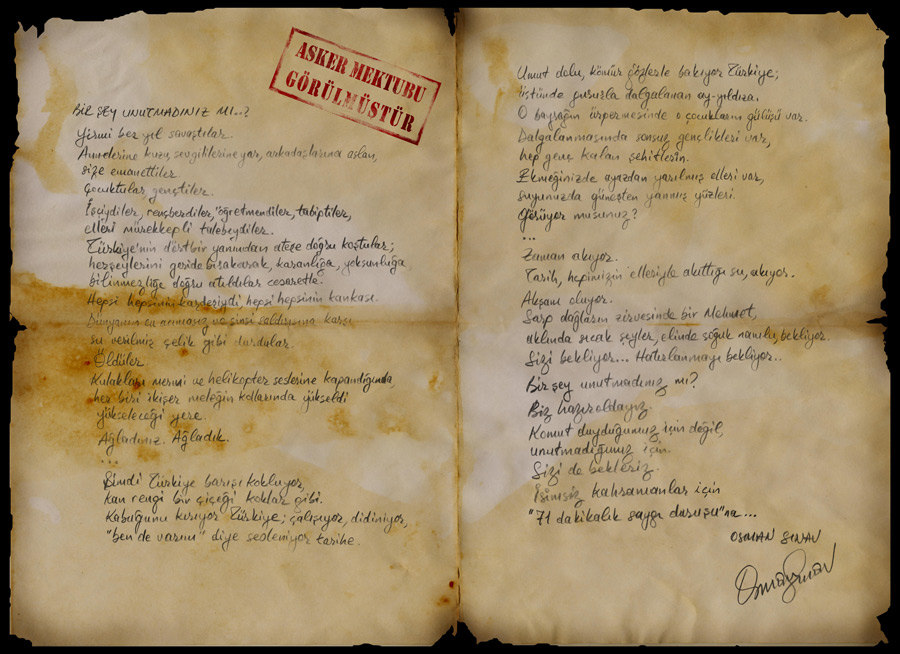 ASKER MEKTUBU
GÖRÜLMÜSTÜR
BİR ŞEY UNUTMADINIZ MI..?
Yirmi beş yıl savaştılar.
Annelerine kuzu, sevgililerine yar, arkadaşlarına aslan,
size emanettiler.
Çocuktular gençtiler.
İşçiydiler, rençberdiler, öğretmendiler, tabiptiler,
elleri mürekkepli talebeydiler.
Türkiye'nin dörtbir yanından ateşe doğru koştular;
herşeylerini geride bırakarak, karanlığa, yoksunluğa
bilinmezliğe doğru atıldılar cesaretle.
Hepsi hepsinin kardeşiydi hepsi hepsinin kankası.
Dünyanın en acımasız ve sinsi saldırısına karşı
su verilmiş çelik gibi durdular.
Öldüler.
Kulakları mermi ve helikopter seslerine kapandığında,
her biri ikişer meleğin kollarında yükseldi
yükseleceği yere.
Ağladınız. Ağladık.
...
Şimdi Türkiye barışı kokluyor,
kan rengi bir çiçeği koklar gibi.
Kabuğunu kırıyor Türkiye; çalışıyor, didiniyor,
"ben de varım" diye sesleniyor tarihe.
Umut dolu, kömür gözlerle bakıyor Türkiye;
üstünde gururla dalgalanan ay-yıldıza.
O bayrağın ürpermesinde o çocukların gülüşü var.
Dalgalanmasında sonsuz gençlikleri var,
hep genç kalan şehitlerin.
Ekmeğinizde ayazdan yarılmış elleri var,
suyunuzda güneşten yanmış yüzleri.
Görüyor musunuz?
...
Zaman akıyor.
Tarih, hepimizin elleriyle akıttığı su, akıyor.
Akşam oluyor.
Sarp dağların zirvesinde bir Mehmet,
aklında sıcak şeyler, elinde soğuk namlu, bekliyor.
Sizi bekliyor... Hatırlanmayı bekliyor..
Bir şey unutmadınız mı?
Biz hazır oldayız.
Komut duyduğumuz için değil,
unutmadığımız için.
Sizi de bekleriz.
İsimsiz kahramanlar için
"71 dakikalık saygı duruşu"na...
OSMAN SINAV